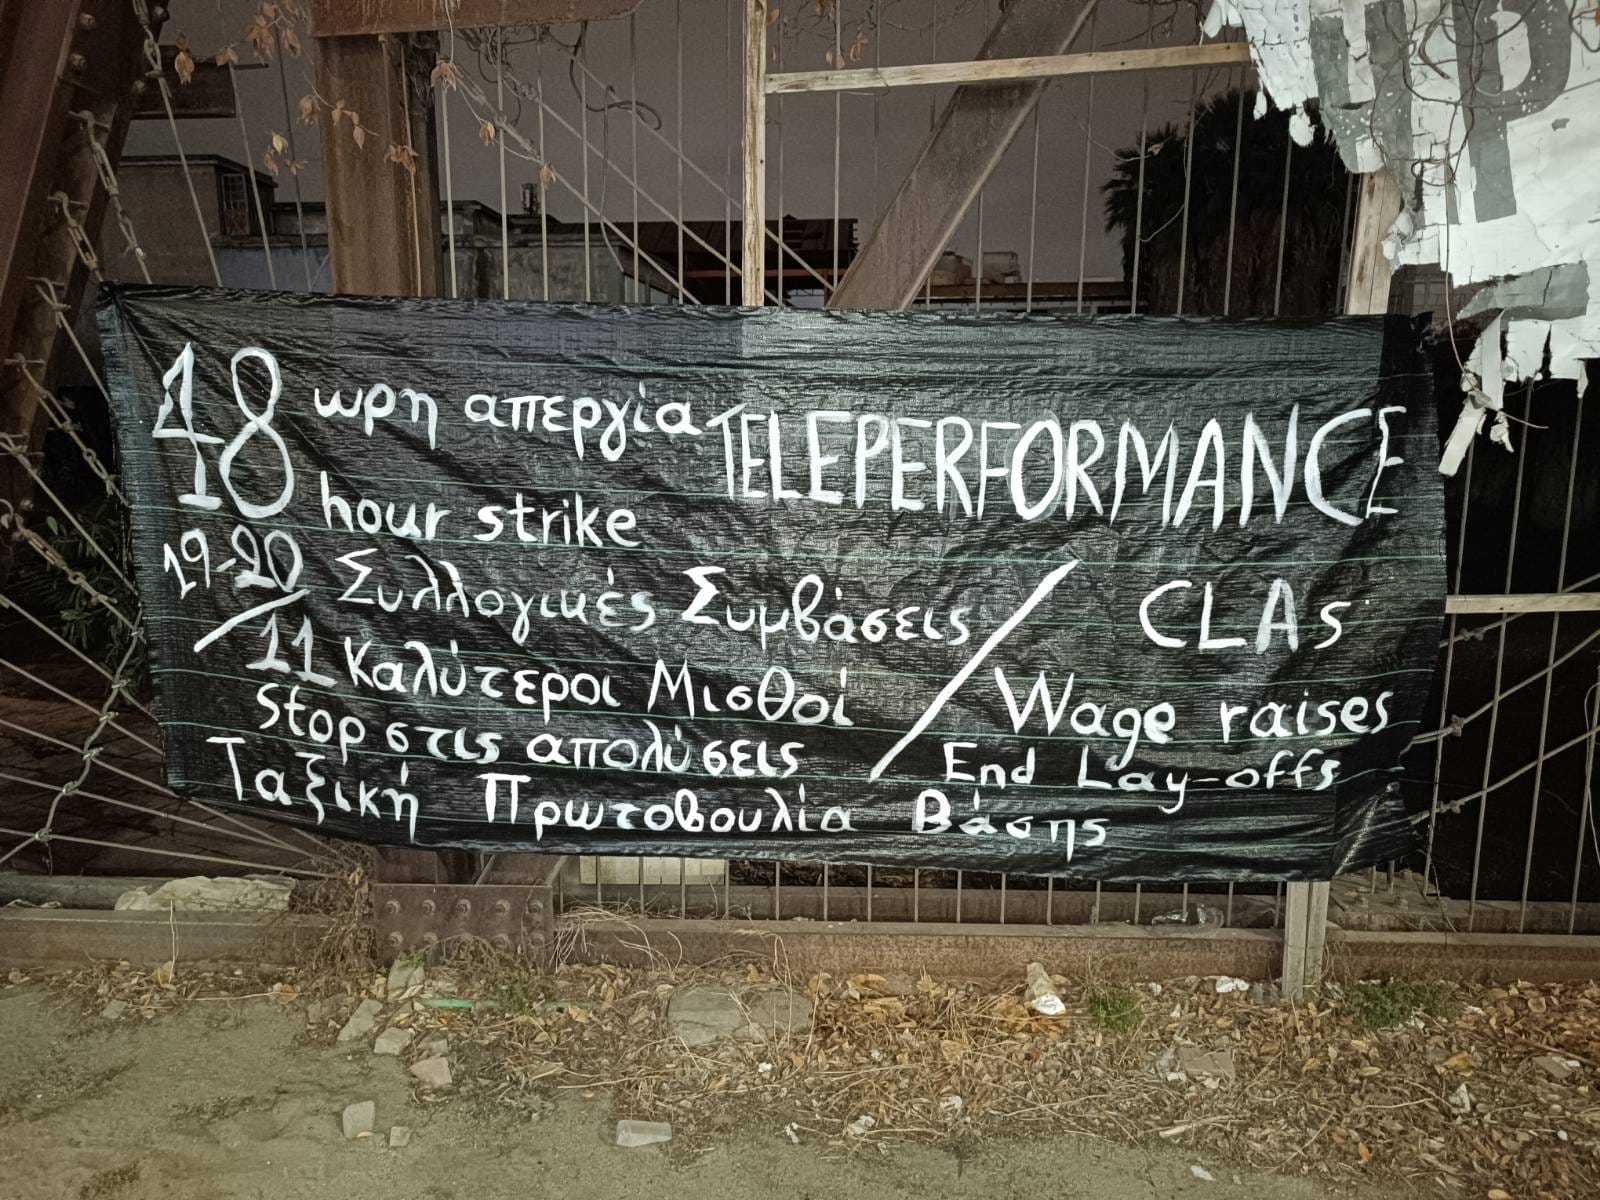 48 ωρη απεργία TELEPERFORMANCE
hour strike
19-20/11 Συλλογικές Συμβάσεις / CLAs
Καλύτεροι Μισθοί / Wage raises
Stop στις απολύσεις / End Lay-offs
Ταξική Πρωτοβουλία Βάσης